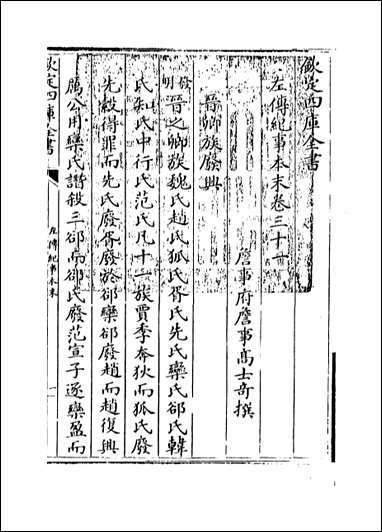 欽定四庫全書
左傳紀事本末卷三十一
詹事府詹事高士奇撰
晉卿族廢興
發明晉之卿族魏氏趙氏狐氏胥氏先氏欒氏郤氏韓
氏知氏中行氏范氏凡十一族賈季奔狄而狐氏廢
先縠得罪而先氏廢胥廢於郤欒郤廢趙而趙復興
厲公用欒氏譖殺三郤而郤氏廢范宣子逐欒盈而
欽定四庫全書
左傳紀事本末
一